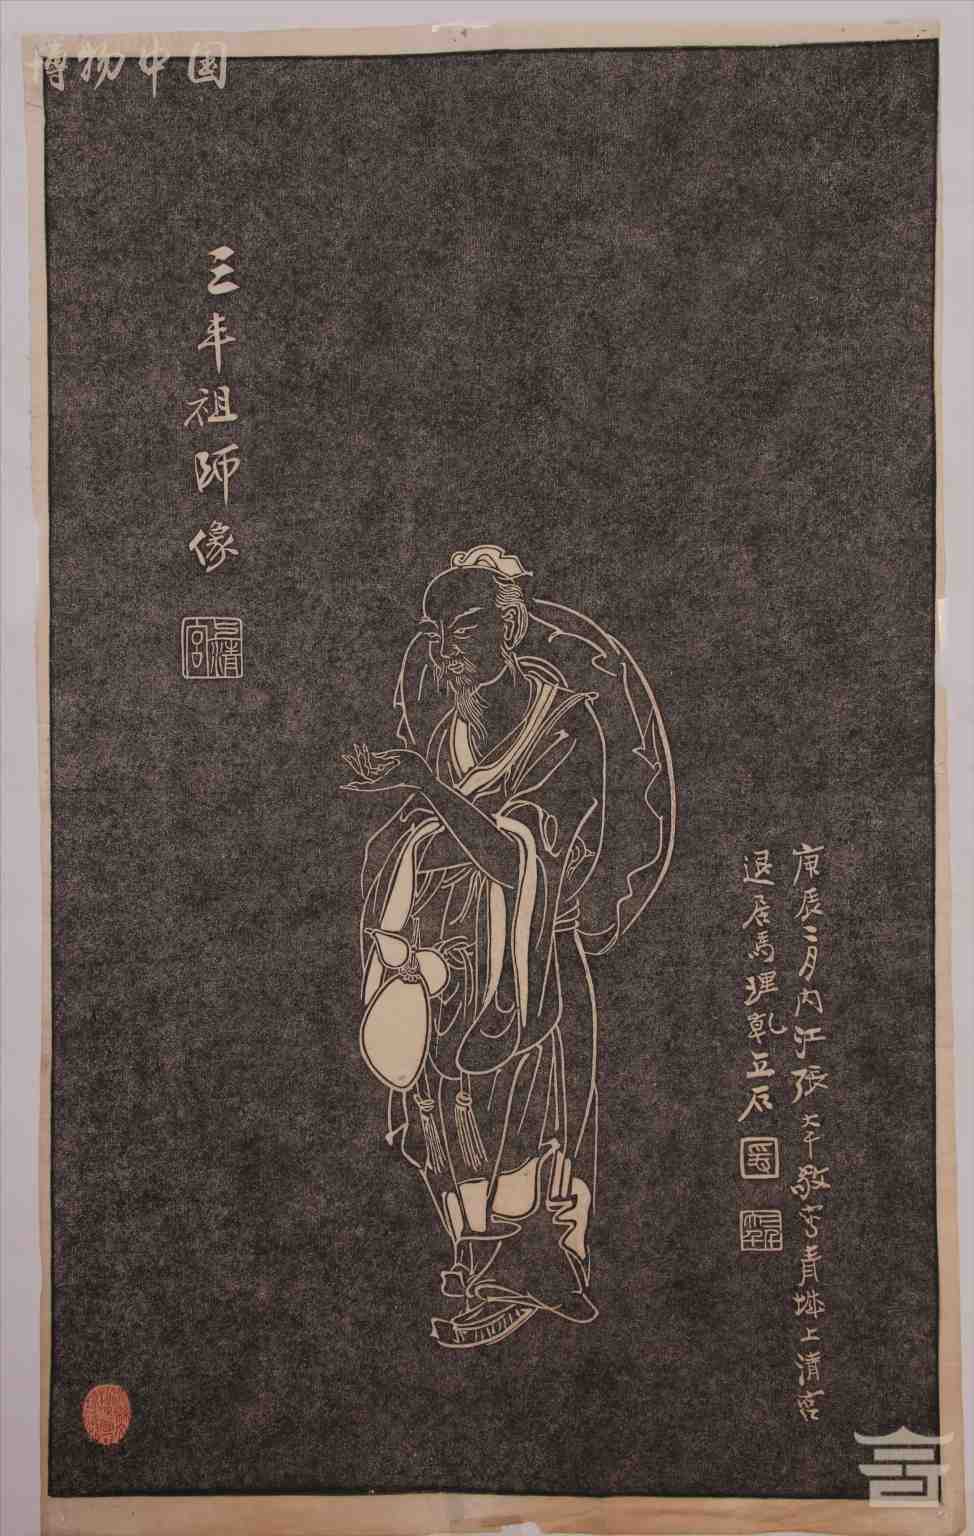 博物中国
庚辰二月内江張大千敬写青城上清宮
退居馬理乾立石
三丰祖師像
上清宮